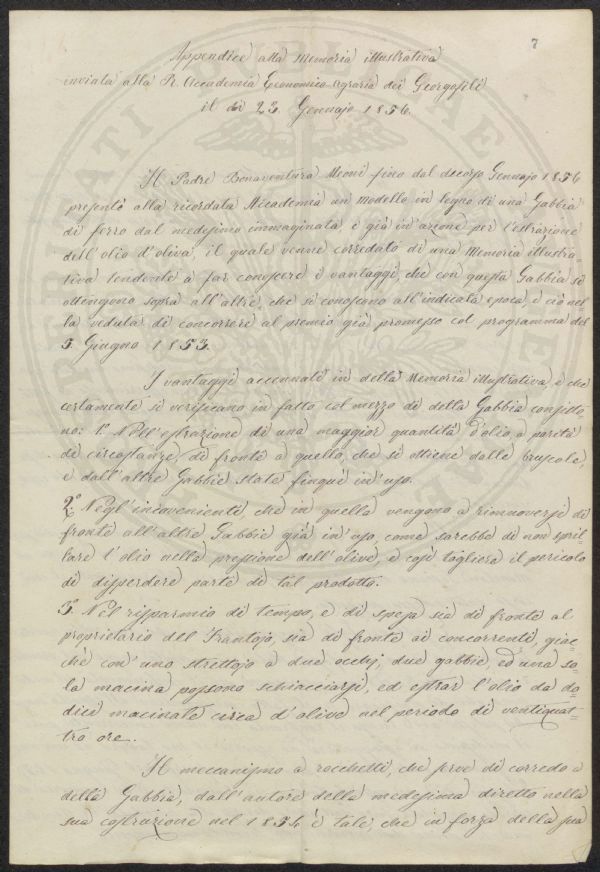 7
Appendice alla Memoria illustrativa
inviata alla R. Accademia Economico-Agraria dei Georgofili
il dì 23 Gennajo 1856.
Il Padre Bonaventura Meoni fino dal decorso Gennajo 1856
presentò alla ricordata Accademia un modello in legno di una Gabbia
di ferro dal medesimo immaginata, e già in azione per l'estrazione
dell'olio d'oliva, il quale venne corredato di una Memoria illustra-
tiva tendente a far conoscere i vantaggi, che con questa Gabbia si
ottengono sopra all'altre, che si conoscono all'indicata epoca, e ciò nel-
la veduta di concorrere al premio già promesso col programma del
5 Giugno 1853.
I vantaggi accennati in detta Memoria illustrativa, e che
certamente si verificano in fatto col mezzo di detta Gabbia consisto-
no: 1º. Nell'estrazione di una maggior quantità d'olio, a parità
di circostanze, di fronte a quello, che si ottiene dalle bruscole,
e dall'altre Gabbie state finquì in'uso.
2º. Negl'inconvenienti che in quella vengono a rimuoversi di
fronte all'altre Gabbie già in'uso, come sarebbe di non spril-
lare l'olio nella pressione dell'olive, e così togliere il pericolo
di disperdere parte di tal prodotto.
3º. Nel risparmio di tempo, e di spesa sia di fronte al
proprietario del Frantojo, sia di fronte ai concorrenti, giac-
chè con'uno strettojo a due occhj, due gabbie, ed una so-
la macina possono schiacciarsi, ed estrar l'olio da do-
dici macinate circa d'olive nel periodo di ventiquat-
tro ore.
Il meccanismo a rocchetti, che serve di corredo a
detta Gabbia, dall'autore della medesima diretto nella
sua costruzione nel 1854, è tale, che in forza della sua